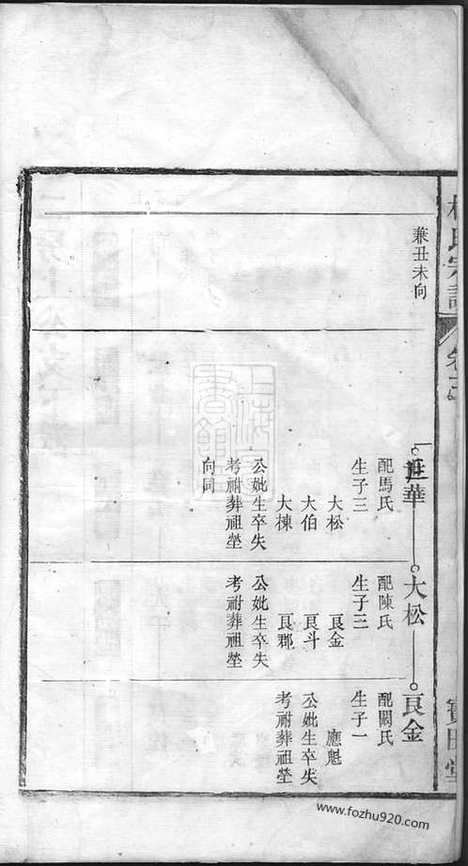 兼丑未向
華
配馬氏
生子三
大松
大伯
大棟
公妣生卒失
考祔葬祖塋
向同
大松
配陳氏
生子三
良金
良斗
良郡
公妣生卒失
考祔葬祖塋
良金
配闕氏
生子一
應魁
公妣生卒失
考祔葬祖塋
氏宗譜
寶田堂
上海
書館
www.fozhu920.com